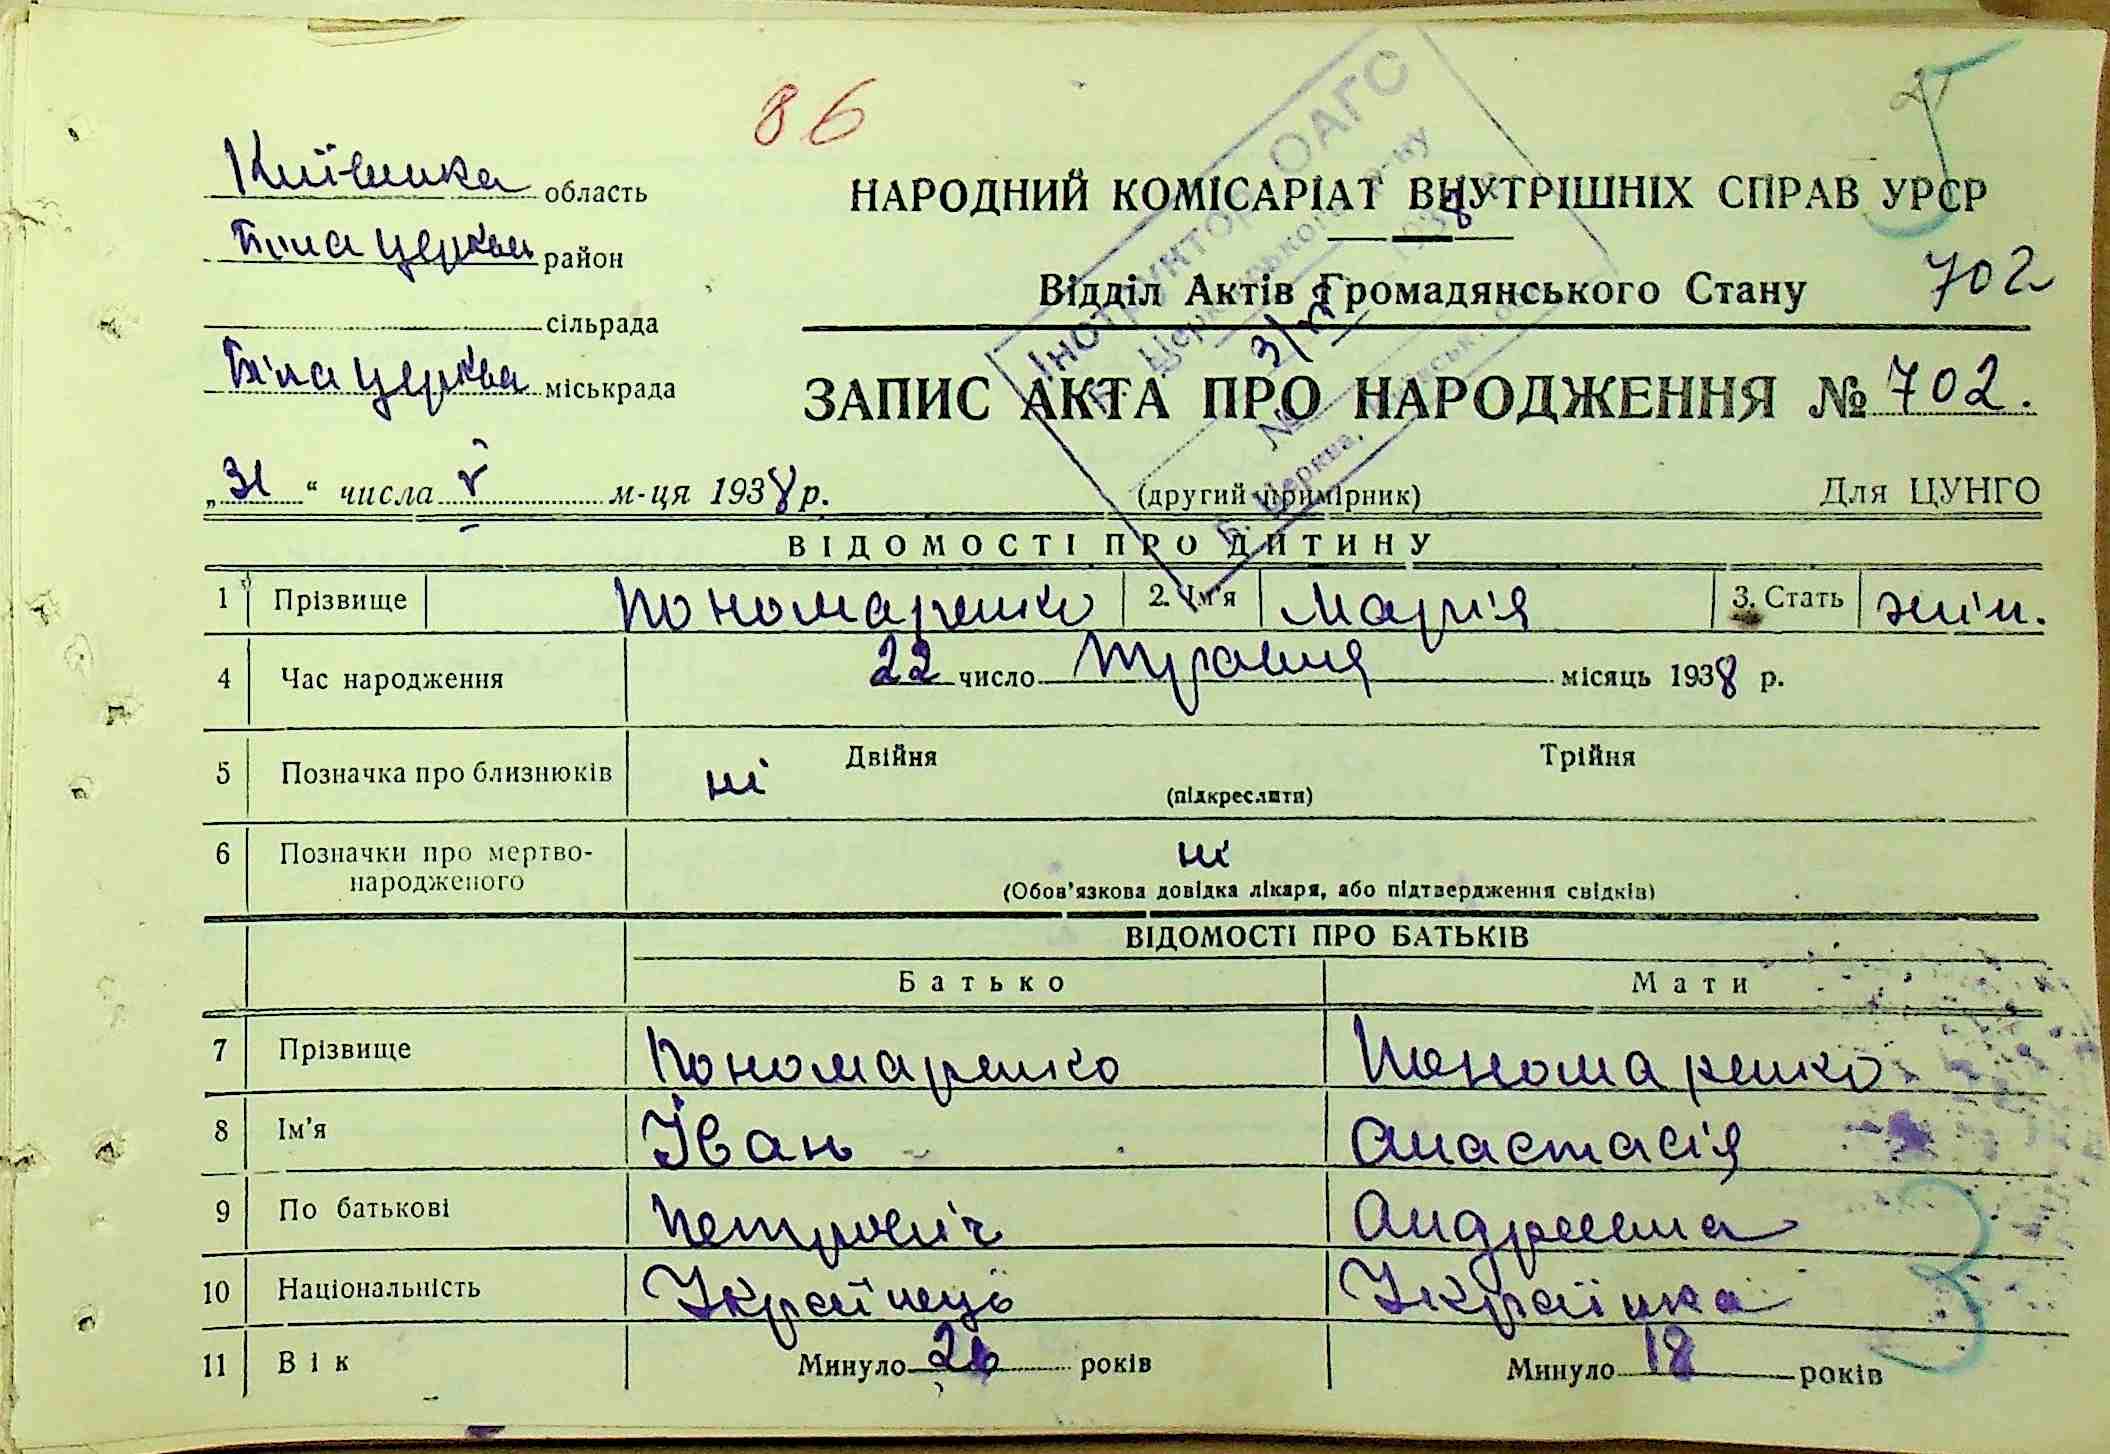 86
5
Київська область
Біла Церква район
сільрада
Біла Церква міськрада
НАРОДНИЙ КОМІСАРІАТ ВНУТРІШНІХ СПРАВ УРСР
Відділ Актів Громадянського Стану
702
ЗАПИС АКТА ПРО НАРОДЖЕННЯ № 702.
„31“ числа V м-ця 1938 р.
(другий примірник)
Для ЦУНГО
ВІДОМОСТІ ПРО ДИТИНУ
1 Прізвище Пономаренко 2. Ім'я Марія 3. Стать жін.
4 Час народження 22 число травня місяць 1938 р.
5 Позначка про близнюків ні Двійня Трійня
(підкреслити)
6 Позначки про мертво-
народженого ні
(Обов'язкова довідка лікаря, або підтвердження свідків)
ВІДОМОСТІ ПРО БАТЬКІВ
Батько Мати
7 Прізвище Пономаренко Пономаренко
8 Ім'я Іван Анастасія
9 По батькові Петровіч Андреевна
10 Національність Українець Українка
11 Вік Минуло років Минуло 18 років
3